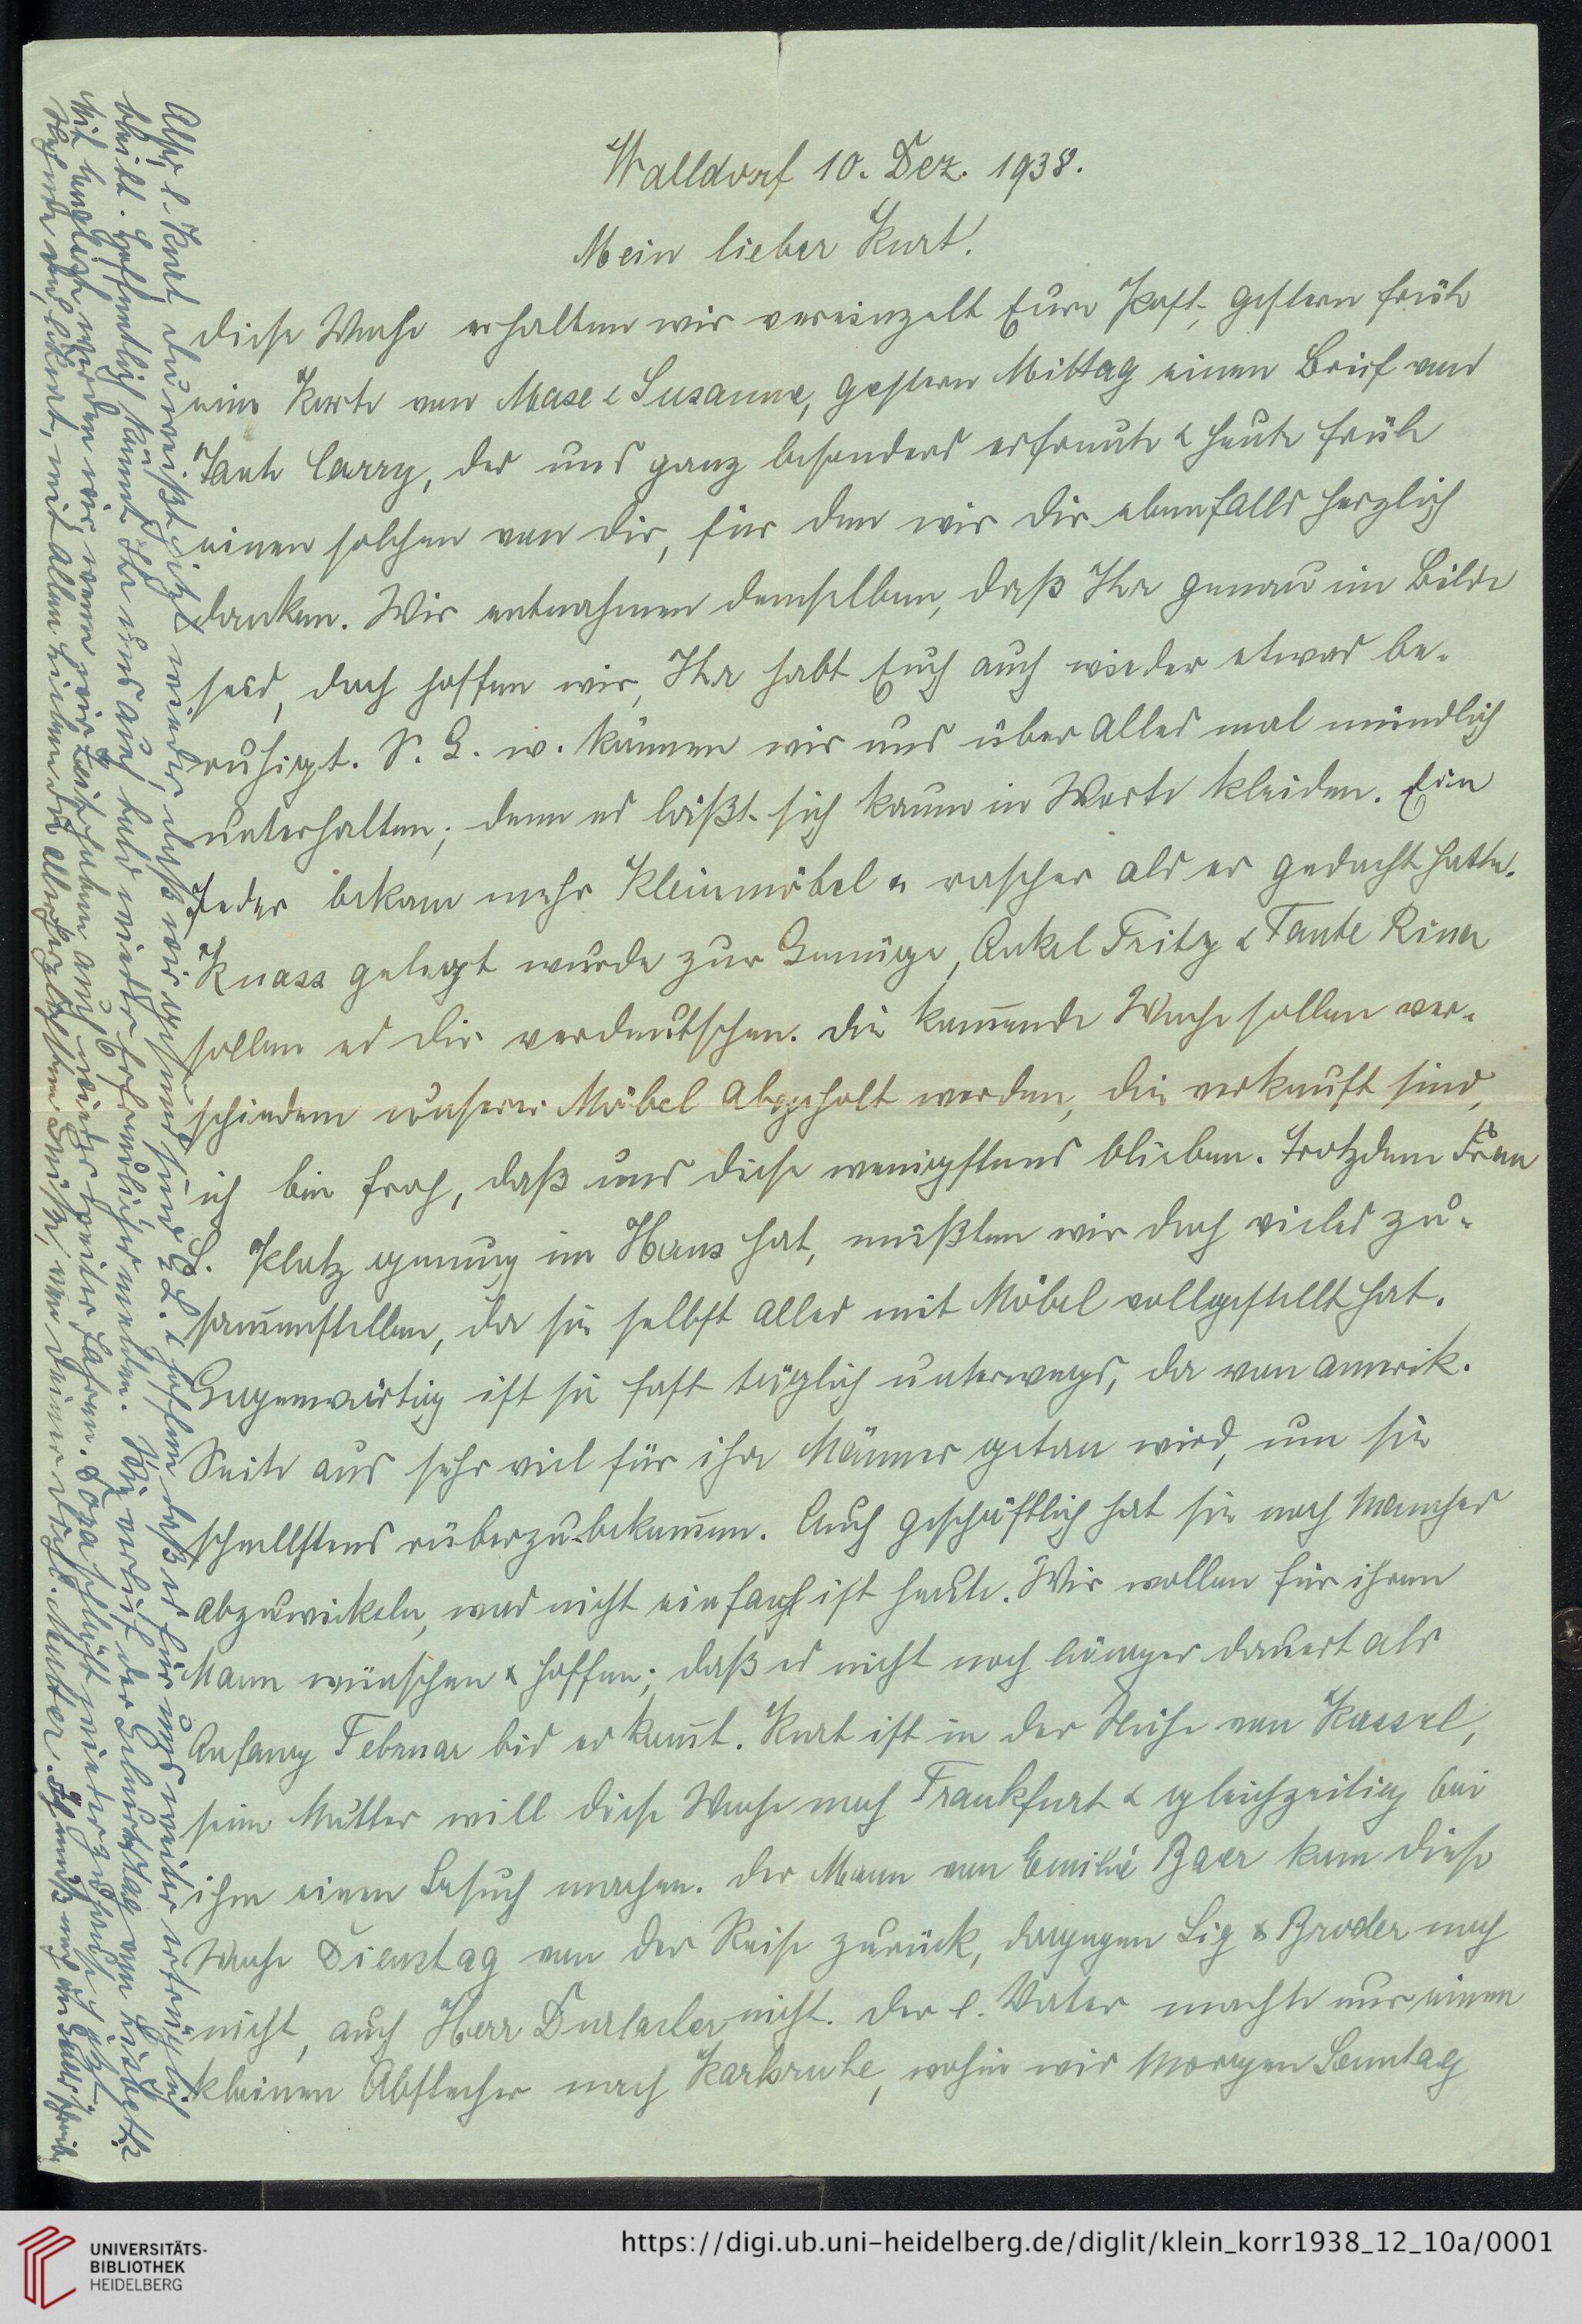 Walldorf 10. Dez. 1938.
Mein lieber Kurt!
Diese Woche erhalten wir vereinzelt Eure Post, gestern früh
eine Karte von Mase & Susanne, gestern Mittag einen Brief von
Tante Carry, der uns ganz besonders erfreute & heute früh
einen solchen von Dir, für den wir Dir ebenfalls herzlich
danken. Wir entnahmen demselben, daß Ihr genau im Bilde
seid, doch hoffen wir, Ihr habt Euch auch wieder etwas be-
ruhigt. S. G. w. können wir uns über alles mal mündlich
unterhalten; denn es läßt sich kaum in Worte kleiden. Ein
Jeder bekam mehr Kleinmöbel & rascher als er gedacht hatte.
Knass gelegt wurde zur Genüge, Onkel Fritz & Tante Rina
sollen es Dir verdeutschen. Die kommende Woche sollen ver-
schiedene unserer Möbel abgeholt werden, die verkauft sind,
ich bin froh, daß uns diese wenigstens blieben. Trotzdem Frau
S. Platz genug im Haus hat, mußten wir doch vieles zu-
sammenstellen, da sie selbst alles mit Möbel vollgestellt hat.
Gegenwärtig ist sie fast täglich unterwegs, da von amerik.
Seite aus sehr viel für ihre Männer getan wird, um sie
schnellstens rüberzubekommen. Auch geschäftlich hat sie noch manches
abzuwickeln, was nicht einfach ist heute. Wir wollen für ihren
Mann wünschen & hoffen; daß es nicht noch länger dauert als
Anfang Februar bis er kommt. Kurt ist in der Nähe von Kassel,
seine Mutter will diese Woche nach Frankfurt & gleichzeitig bei
ihm einen Besuch machen. Der Mann von Emilie Baer kam diese
Woche Dienstag von der Reise zurück, dagegen Sig & Bruder noch
nicht, auch Herr Durlacher nicht. Der l. Vater machte nur einen
kleinen Abstecher nach Karlsruhe, wohin wir morgen Sonntag
Also l. Kurt Du weißt jetzt wieder, daß wir gesund sind G. L. & hoffen daß es für uns weiter erträglich
bleibt. Hoffentlich könnt Ihr uns auch bald wieder Erfreuliches melden. Wie verlief der Geburtstag von Lisbeth?
Mit Englisch werden wir, wenn wir Zeit haben auch wieder weiter fahren. Dora schläft wieder zuhause jetzt.
Lieber Kurt, mit allen Lieben die allerherzlichsten Grüße, von Deiner Dich l. Mutter. Ich muß noch an